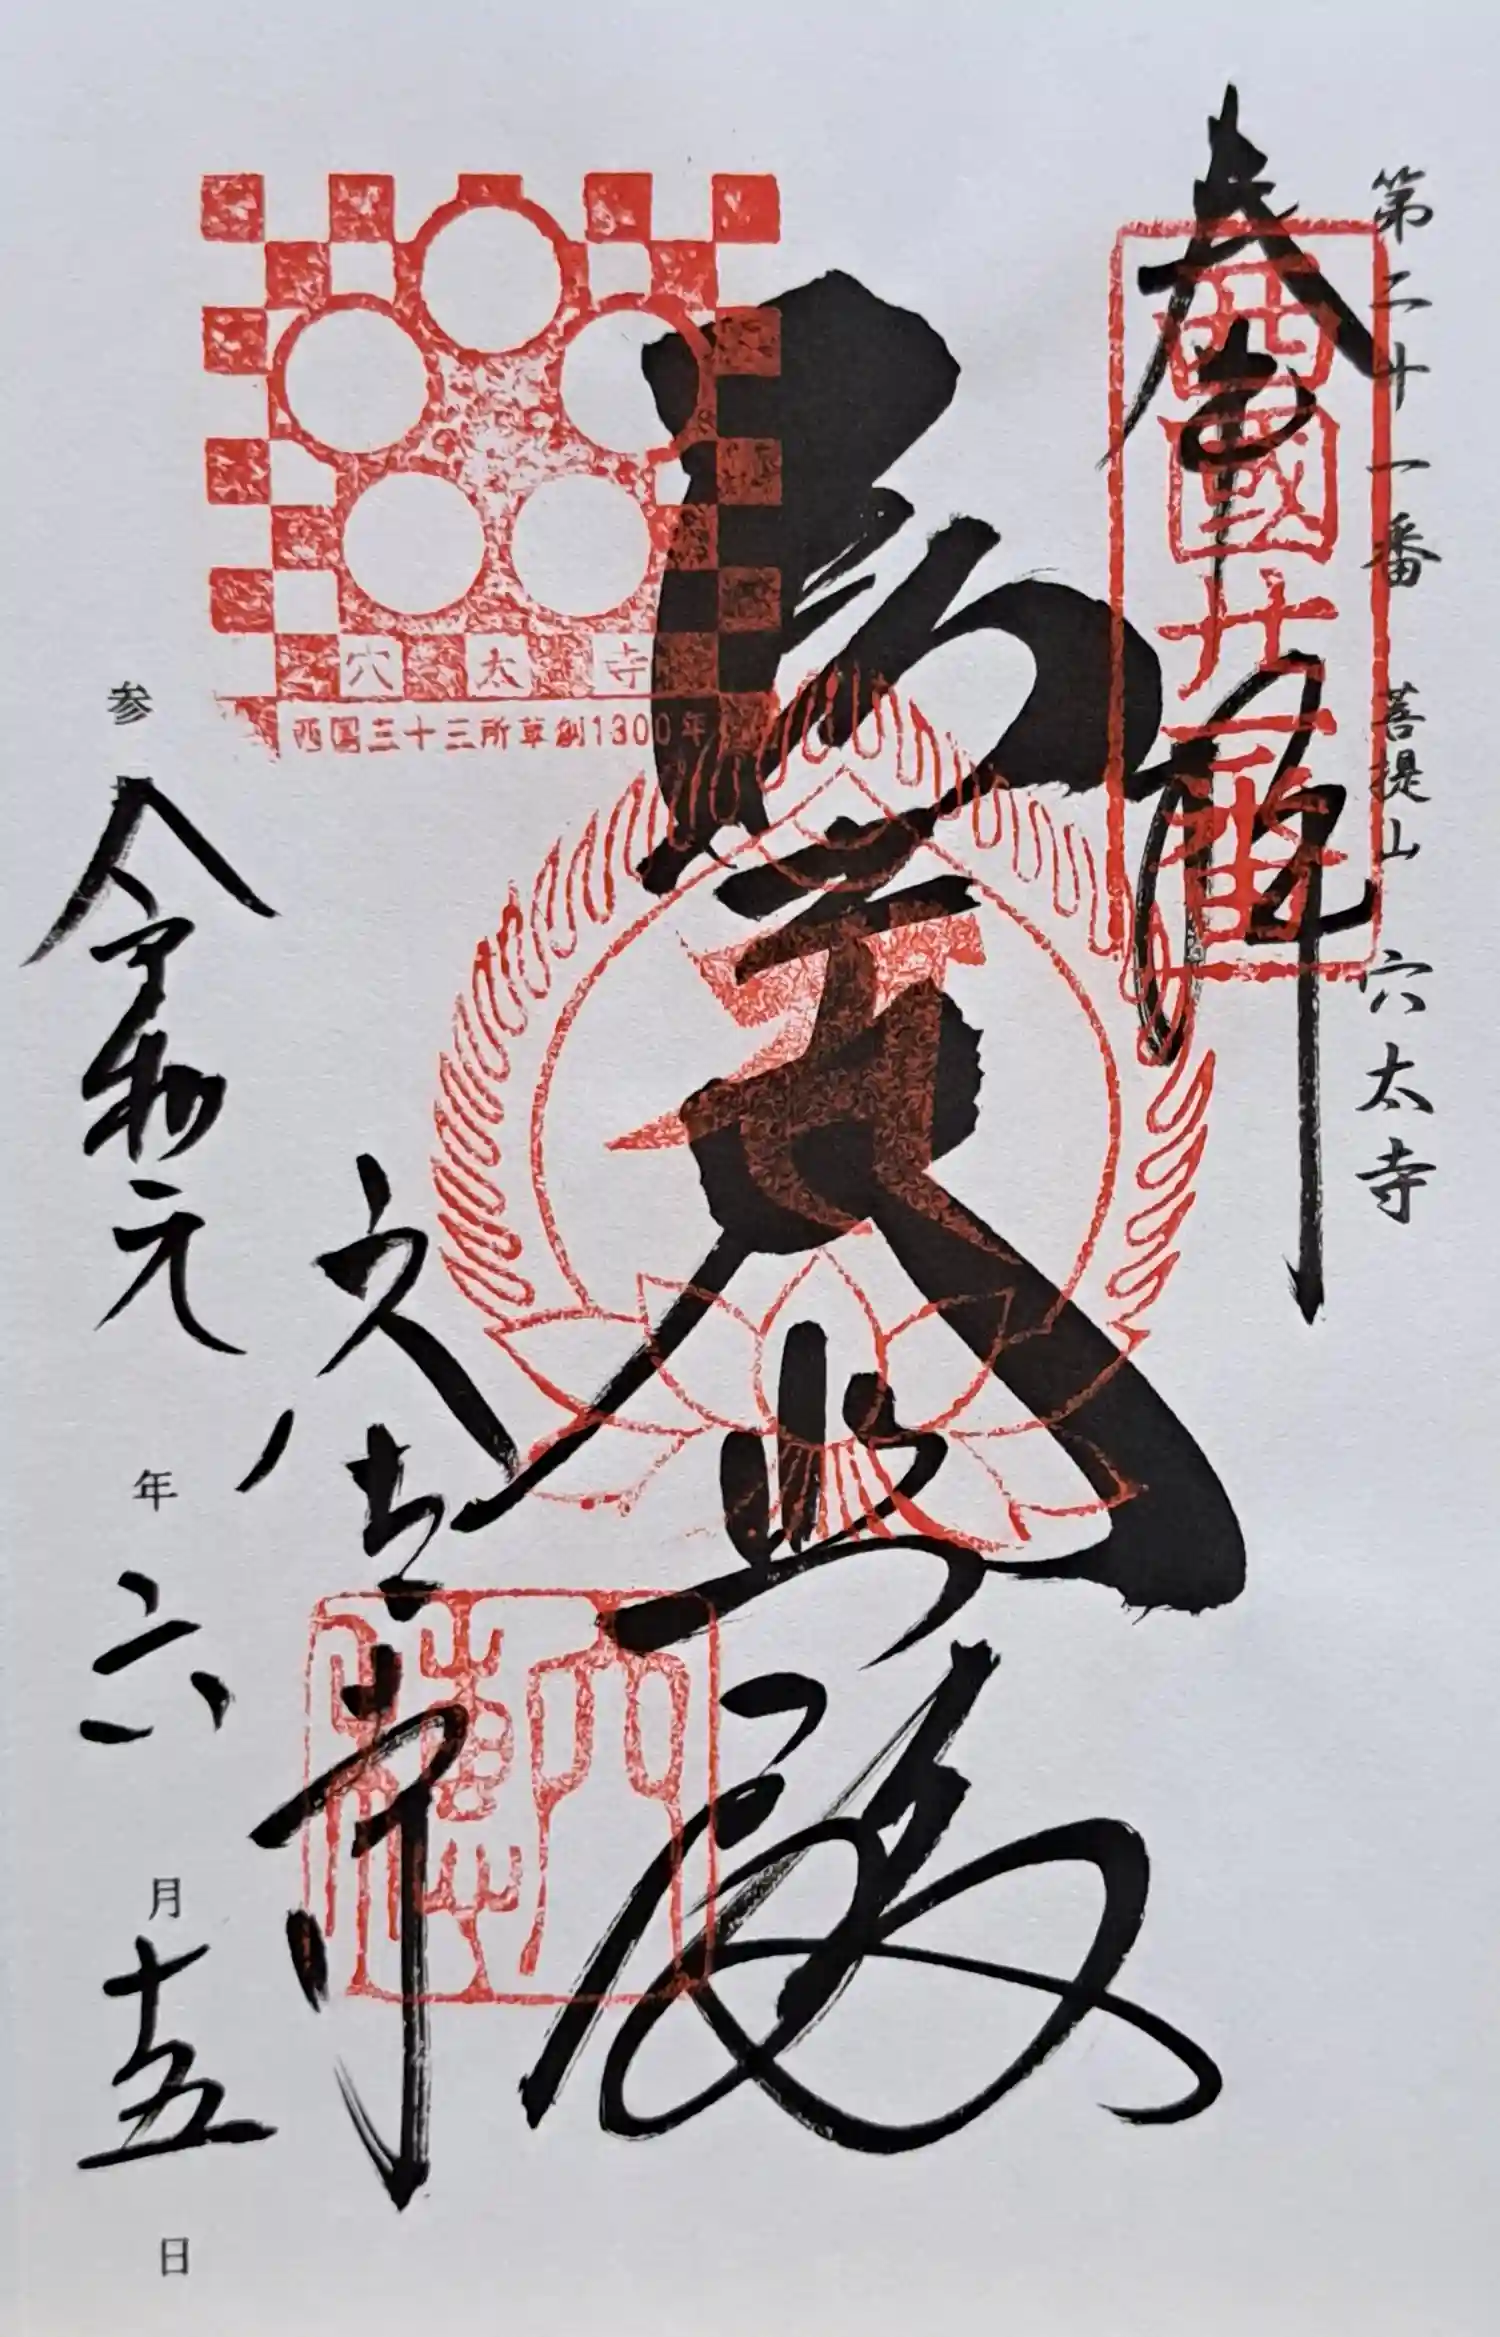 第二十一番 菩提山 穴太寺
奉拝
西國廿一番
聖大悲殿
穴太寺
西国三十三所草創1300年
穴太寺
参 令和元年六月十五日